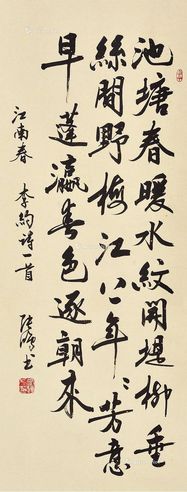 池塘春暖水紋開堤柳垂
絲間野梅江上年〻芳意
早蓬瀛春色逐朝來
江南春 李約詩一首
書